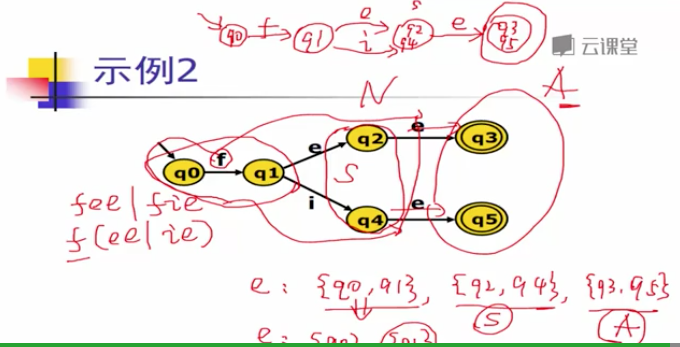 e s
q0 f q1 i q2 q4 e q3 q5
云课堂
示例2
N A
q0 f q1 e q2 e q3
S
i q4 e q5
fee|fie
f(ee|ie)
e: {q0,q1}, {q2,q4}, {q3,q5}
S A